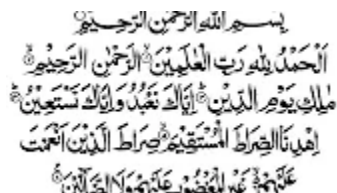 بِسْمِ اللهِ الرَّحْمٰنِ الرَّحِيْمِ
اَلْحَمْدُ لِلّٰهِ رَبِّ الْعٰلَمِيْنَ ۙ الرَّحْمٰنِ الرَّحِيْمِ ۙ
مٰلِكِ يَوْمِ الدِّيْنِ ۗ اِيَّاكَ نَعْبُدُ وَاِيَّاكَ نَسْتَعِيْنُ ۗ
اِهْدِنَا الصِّرَاطَ الْمُسْتَقِيْمَ ۙ صِرَاطَ الَّذِيْنَ اَنْعَمْتَ
عَلَيْهِمْ ۙ غَيْرِ الْمَغْضُوْبِ عَلَيْهِمْ وَلَا الضَّآلِّيْنَ